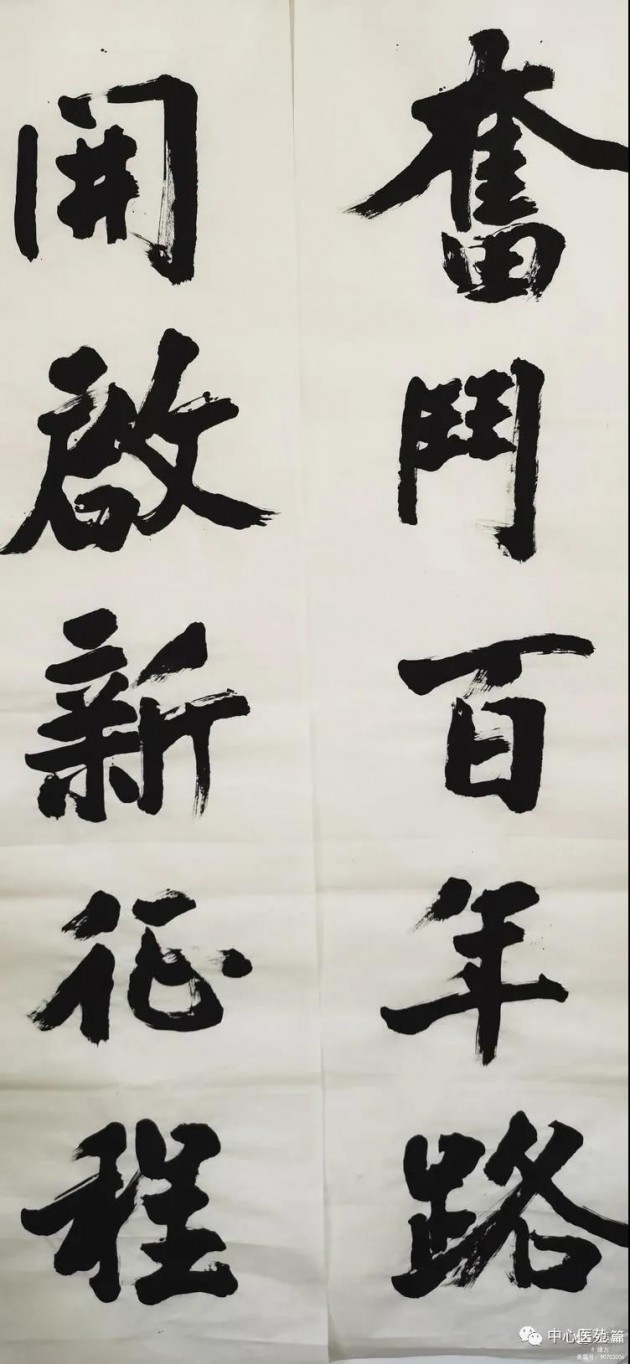 奮鬥百年路
開啟新征程
中心医苑篇